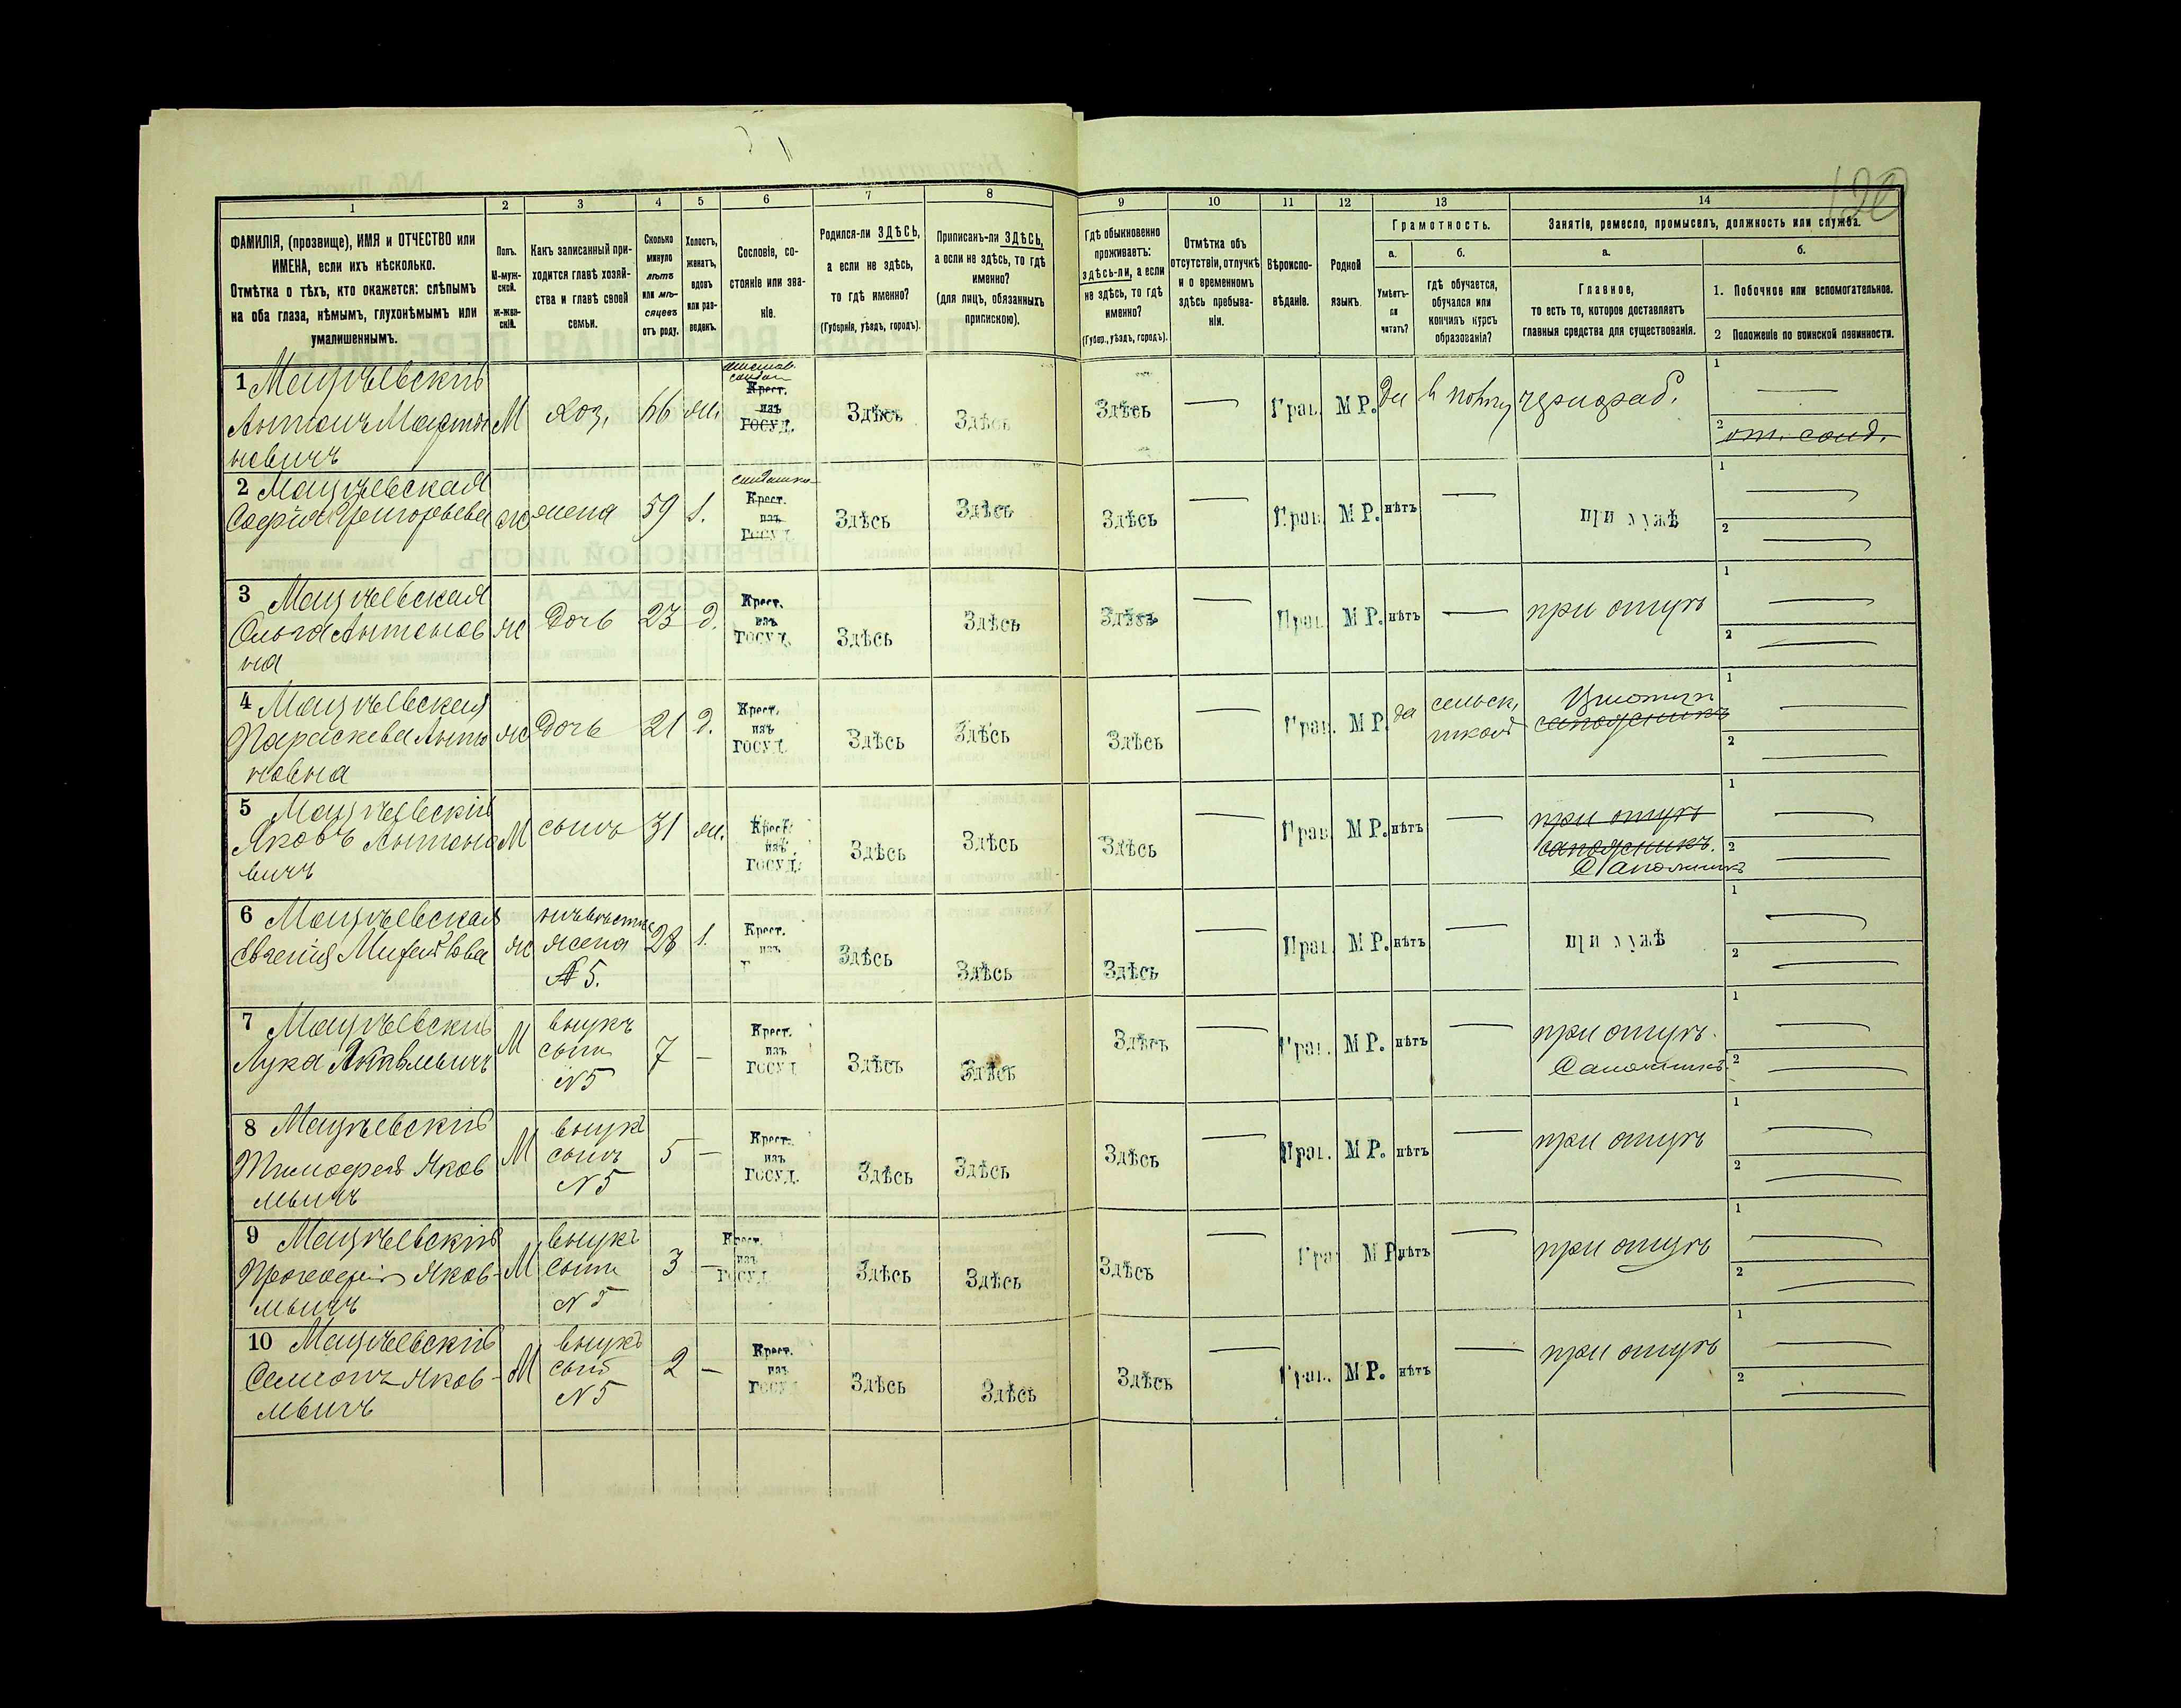 120
1 2 3 4 5 6 7 8 9 10 11 12 13 14
ФАМИЛІЯ, (прозвище), ИМЯ и ОТЧЕСТВО или
ИМЕНА, если ихъ нѣсколько.
Отмѣтка о тѣхъ, кто окажется: слѣпымъ
на оба глаза, нѣмымъ, глухонѣмымъ или
умалишеннымъ.
Полъ.
М-муж-
ской.
Ж-жен-
скій.
Какъ записанный при-
ходится главѣ хозяй-
ства и главѣ своей
семьи.
Сколько
минуло
лѣтъ
или мѣ-
сяцевъ
отъ роду.
Холостъ,
женатъ,
вдовъ
или раз-
веденъ.
Сословіе, со-
стояніе или зва-
ніе.
Родился-ли ЗДѢСЬ,
а если не здѣсь,
то гдѣ именно?
(Губернія, уѣздъ, городъ).
Приписанъ-ли ЗДѢСЬ,
а если не здѣсь, то гдѣ
именно?
(для лицъ, обязанныхъ
припискою).
Гдѣ обыкновенно
проживаетъ:
здѣсь-ли, а если
не здѣсь, то гдѣ
именно?
(Губер., уѣздъ, городъ).
Отмѣтка объ
отсутствіи, отлучкѣ
и о временномъ
здѣсь пребыва-
ніи.
Вѣроиспо-
вѣданіе.
Родной
языкъ.
Грамотность.
а.
Умѣетъ-
ли
читать?
б.
гдѣ обучается,
обучался или
кончилъ курсъ
образованія?
Занятіе, ремесло, промыселъ, должность или служба.
а.
Главное,
то есть то, которое доставляетъ
главныя средства для существованія.
б.
1. Побочное или вспомогательное.
2 Положеніе по воинской повинности.
1 Мацѣевскій
Антонъ Марты
новичъ
М хоз. 66 жн.
Крест.
изъ
ГОСУД.
Здѣсь Здѣсь Здѣсь — Прав. М Р. да
чернораб.
1 —
2 от. солд.
2 Мацѣевская
Софія Григорьева
ж жена 59 з.
солдатка
Крест.
изъ
ГОСУД.
Здѣсь Здѣсь Здѣсь — Прав. М Р. нѣтъ — при мужѣ
1 —
2 —
3 Мацѣевская
Ольга Антонов
на
ж дочь 23 д.
Крест.
изъ
ГОСУД.
Здѣсь Здѣсь Здѣсь — Прав. М Р. нѣтъ — при отцѣ
1 —
2 —
4 Мацѣевская
Параскева Анто
новна
ж дочь 21 д.
Крест.
изъ
ГОСУД.
Здѣсь Здѣсь Здѣсь — Прав. М Р. да
сельск.
школѣ
сапожникъ
1 —
2 —
5 Мацѣевскій
Яковъ Антоно
вичъ
М сынъ 31 жн.
Крест.
изъ
ГОСУД.
Здѣсь Здѣсь Здѣсь — Прав. М Р. нѣтъ —
при отцѣ
сапожникъ.
Сапожникъ
1 —
2 —
6 Мацѣевская
Евгенія
ж
невѣстка
жена
№ 5.
28 з.
Крест.
изъ
Г
Здѣсь Здѣсь Здѣсь — Прав. М Р. нѣтъ — при мужѣ
1 —
2 —
7 Мацѣевскій
Лука Яковлевичъ
М
внукъ
сынъ
N 5
7 —
Крест.
изъ
ГОСУД
Здѣсь Здѣсь Здѣсь — Прав. М Р. нѣтъ —
при отцѣ.
Сапожникъ.
1 —
2 —
8 Мацѣевскій
Тимофей Яков
льичъ
М
внукъ
сынъ
N 5
5 —
Крест.
изъ
ГОСУД.
Здѣсь Здѣсь Здѣсь — Прав. М Р. нѣтъ — при отцѣ
1 —
2 —
9 Мацѣевскій
Прокофій Яков-
льичъ
М
внукъ
сынъ
N 5
3 —
Крест.
изъ
ГОСУД.
Здѣсь Здѣсь Здѣсь — Прав М Р. нѣтъ — при отцѣ
1 —
2 —
10 Мацѣевскій
Семіонъ Яков-
льичъ
М
внукъ
сынъ
N 5
2 —
Крест.
изъ
ГОСУД
Здѣсь Здѣсь Здѣсь — Прав. М Р. нѣтъ — при отцѣ
1 —
2 —